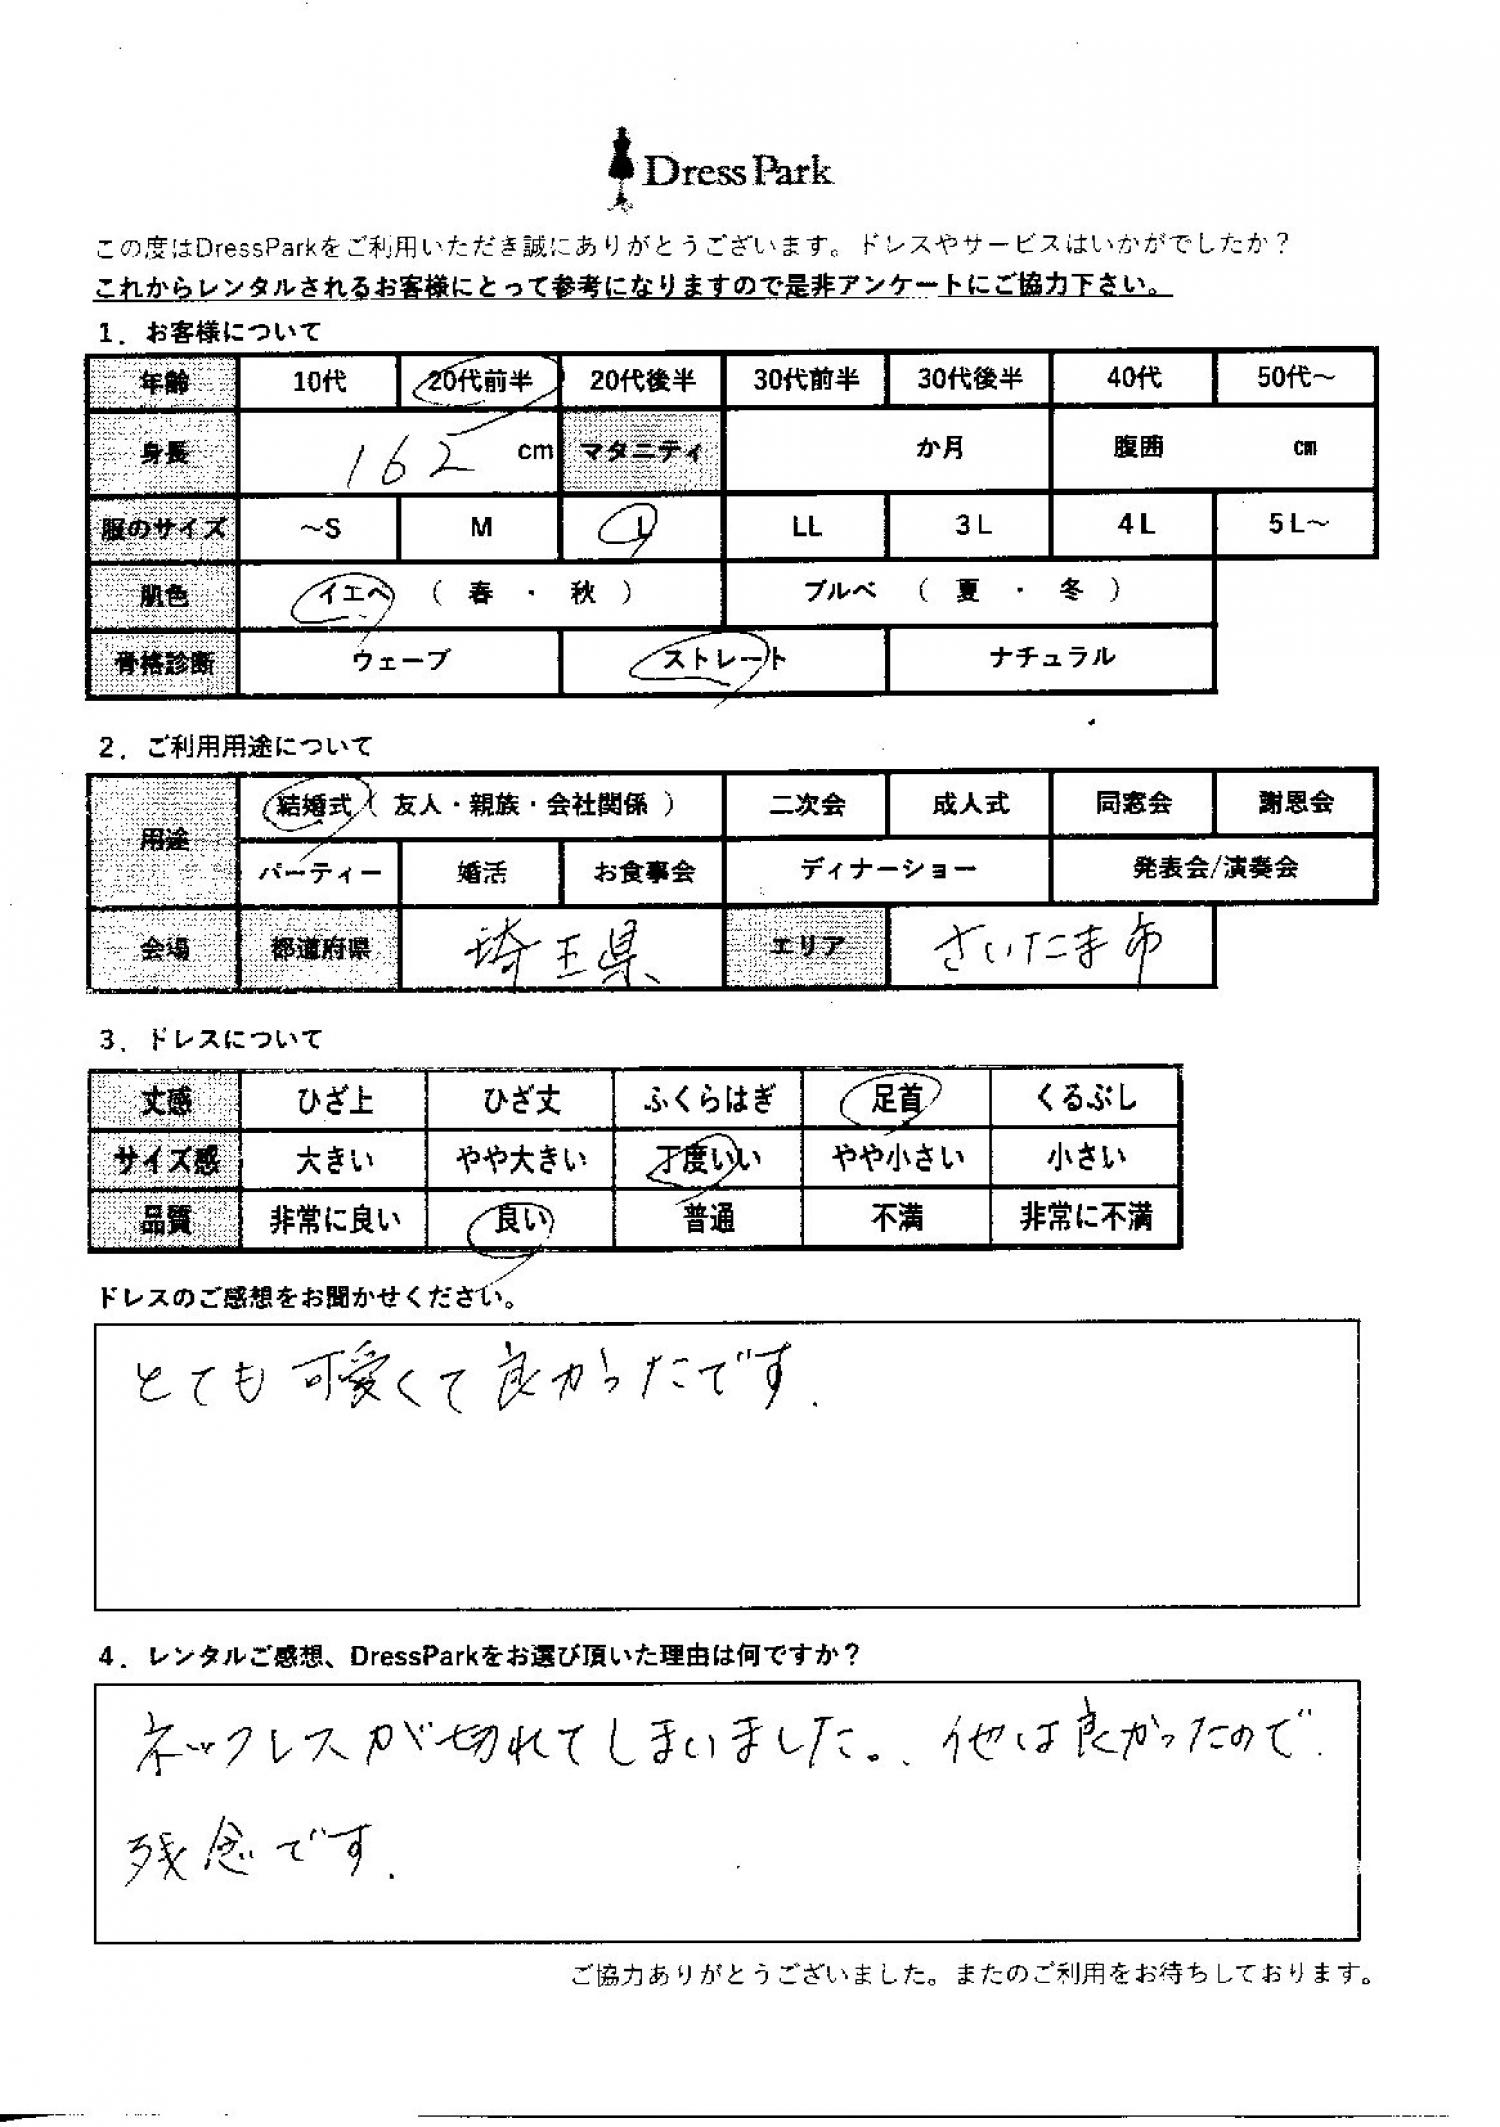 DressPark
この度はDressParkをご利用いただき誠にありがとうございます。ドレスやサービスはいかがでしたか？
これからレンタルされるお客様にとって参考になりますので是非アンケートにご協力下さい。
1．お客様について
年齢 10代 20代前半 20代後半 30代前半 30代後半 40代 50代～
身長 162 cm マタニティ か月 腹囲 cm
服のサイズ ～S M L LL 3L 4L 5L～
肌色 イエベ （ 春 ・ 秋 ） ブルベ （ 夏 ・ 冬 ）
骨格診断 ウェーブ ストレート ナチュラル
2．ご利用用途について
用途 結婚式（ 友人・親族・会社関係 ） 二次会 成人式 同窓会 謝恩会
パーティー 婚活 お食事会 ディナーショー 発表会/演奏会
会場 都道府県 埼玉県 エリア さいたま市
3．ドレスについて
丈感 ひざ上 ひざ丈 ふくらはぎ 足首 くるぶし
サイズ感 大きい やや大きい 丁度いい やや小さい 小さい
品質 非常に良い 良い 普通 不満 非常に不満
ドレスのご感想をお聞かせください。
とても可愛くて良かったです.
4．レンタルご感想、DressParkをお選び頂いた理由は何ですか？
ネックレスが切れてしまいました。. 他は良かったので.
残念です.
ご協力ありがとうございました。またのご利用をお待ちしております。